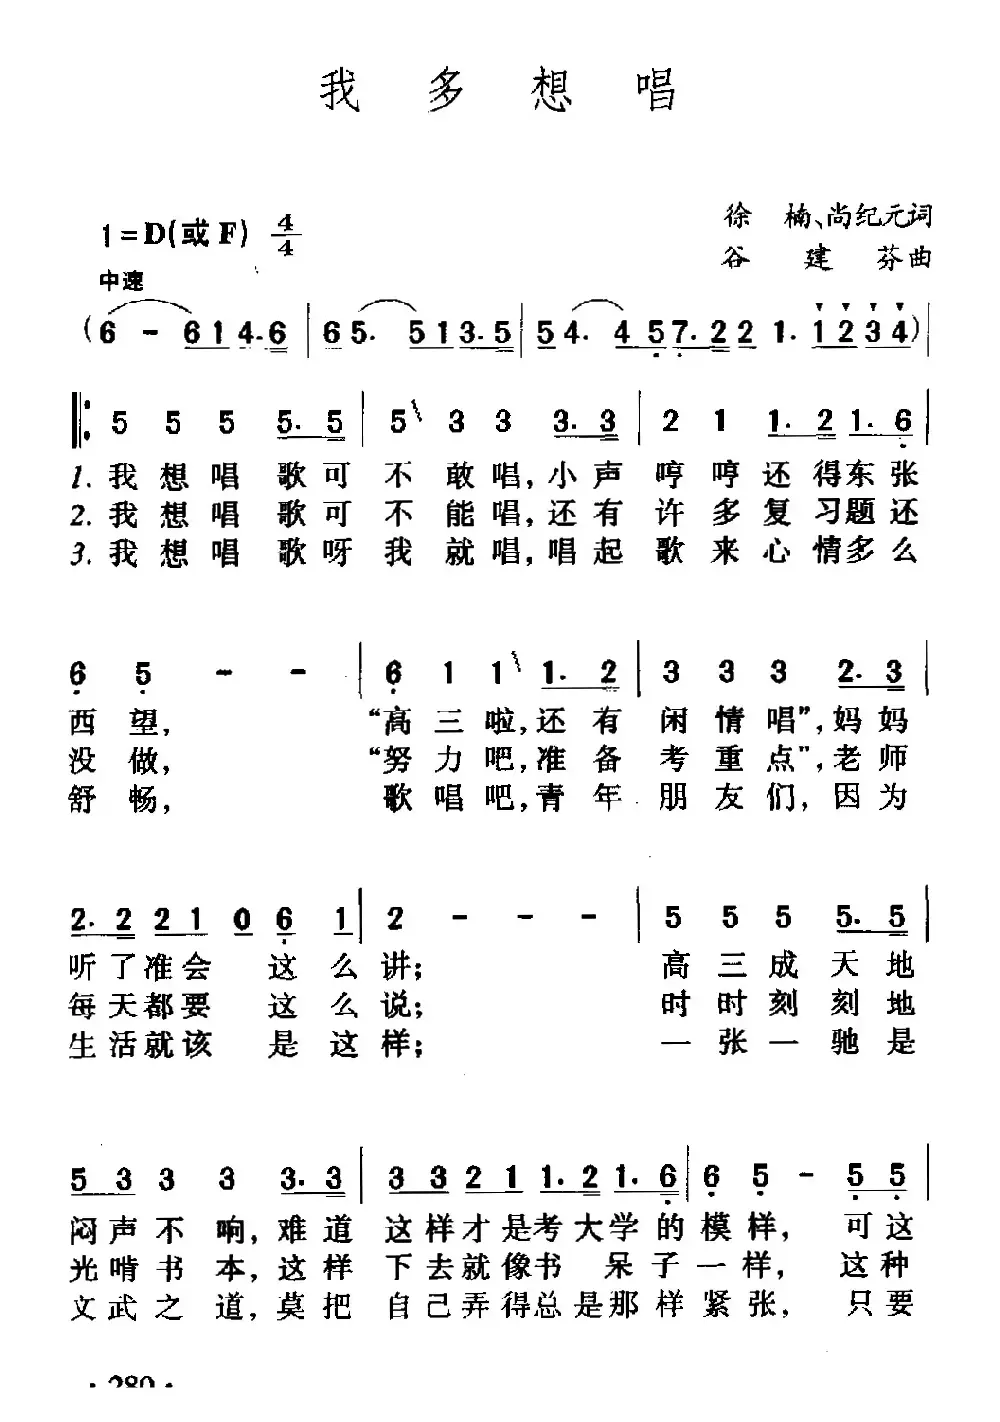 我多想唱
1=D(或F) 4/4
徐 楠、尚纪元词
谷 建 芬曲
中速
(6 - 6 1 4. 6 | 6 5. 5 1 3. 5 | 5 4. 4 5 7. 2 2 1. 1 2 3 4) |
|: 5 5 5 5. 5 | 5 3 3 3. 3 | 2 1 1. 2 1. 6 |
1. 我想唱歌可不敢唱,小声哼哼还得东张
2. 我想唱歌可不能唱,还有许多复习题还
3. 我想唱歌呀我就唱,唱起歌来心情多么
6 5 - - | 6 1 1 1. 2 | 3 3 3 2. 3 |
西望, “高三啦,还有闲情唱”,妈妈
没做, “努力吧,准备考重点”,老师
舒畅, 歌唱吧,青年朋友们,因为
2. 2 2 1 0 6 1 | 2 - - - | 5 5 5 5. 5 |
听了准会这么讲; 高三成天地
每天都要这么说; 时时刻刻地
生活就该是这样; 一张一驰是
5 3 3 3 3. 3 | 3 3 2 1 1. 2 1. 6 | 6 5 - 5 5 |
闷声不响,难道这样才是考大学的模样, 可这
光啃书本,这样下去就像书呆子一样, 这种
文武之道,莫把自己弄得总是那样紧张, 只要
· 280 ·